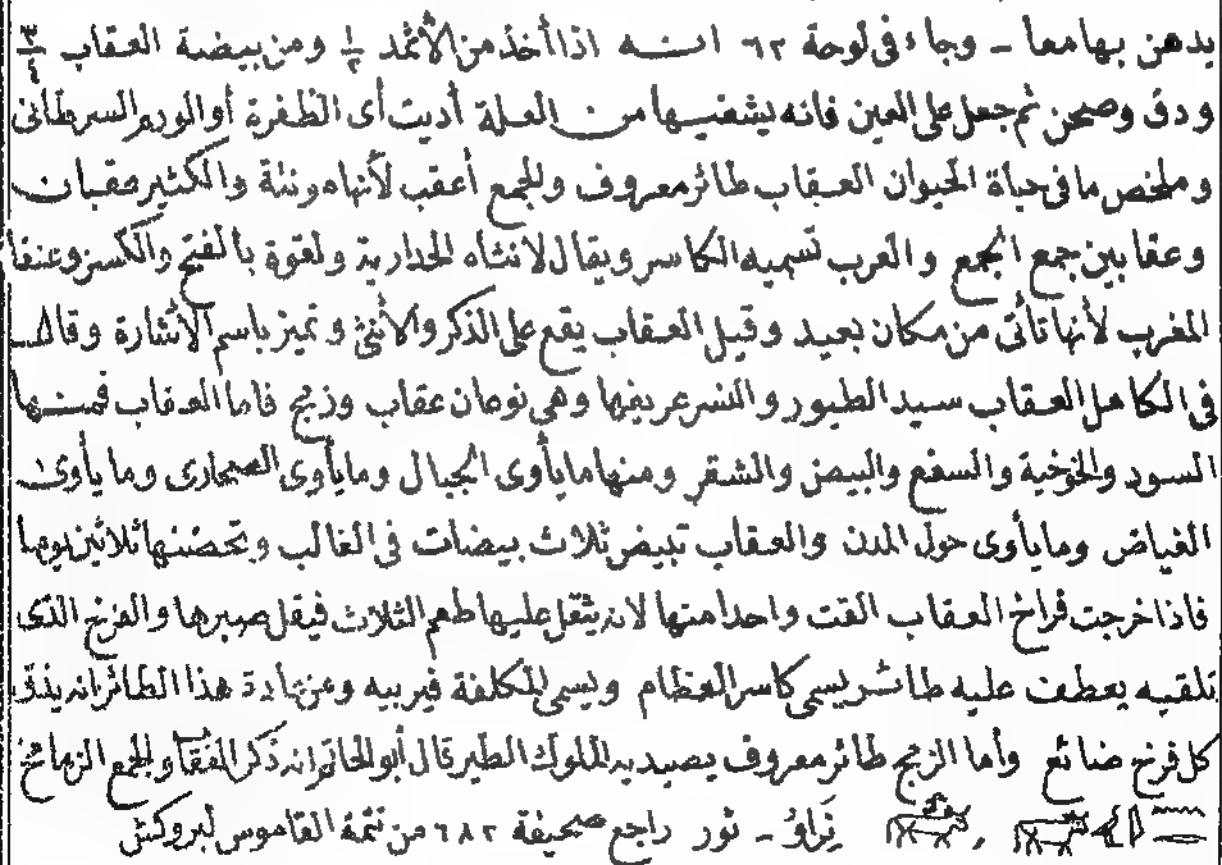 يدهن بها معا - وجاء فى لوحة ٦٢ انــه اذا أخذ من الأثمد ١/٢ ومن بيضة العقاب ٣/٤
ودق وصحن ثم جعل على العين فانه يشفيها من العلة أديت أى الظفرة أو الورم السرطانى
وملخص ما فى حياة الحيوان العقاب طائر معروف والجمع أعقب لأنها مونثة والكثير عقبان
وعقابين جمع الجمع والعرب تسميه الكاسر ويقال لانثاه الخدارية ولقوة بالفتح والكسر وعنقا
المغرب لأنها تاتى من مكان بعيد وقيل العقاب يقع على الذكر والأنثى وتميز باسم الأشارة وقال
فى الكامل العقاب سيد الطيور والنسر عريفها وهى نوعان عقاب وزمج فاما العقاب فمنـها
السود والخوخية والسفع والبيض والشقر ومنها مايأوى الجبال ومايأوى الصحارى وما يأوى
الغياض ومايأوى حول المدن والعقاب تبيض ثلاث بيضات فى الغالب وتحضنها ثلاثين يوما
فاذا خرجت فراخ العقاب القت واحدا منها لانه يثقل عليها طعم الثلاث فيقل صبرها والفرخ الذى
تلقيه يعطف عليه طائر يسمى كاسر العظام ويسمى المكلفة فيربيه ومن عادة هذا الطائر انه يذق
كل فرخ ضائع وأما الزمج طائر معروف يصيد به الملوك الطير قال أبو الحاتم انه ذكر العقاب والجمع الزمامج
نراو - ثور راجع صحيفة ٦٨٢ من تتمة القاموس لبروكش